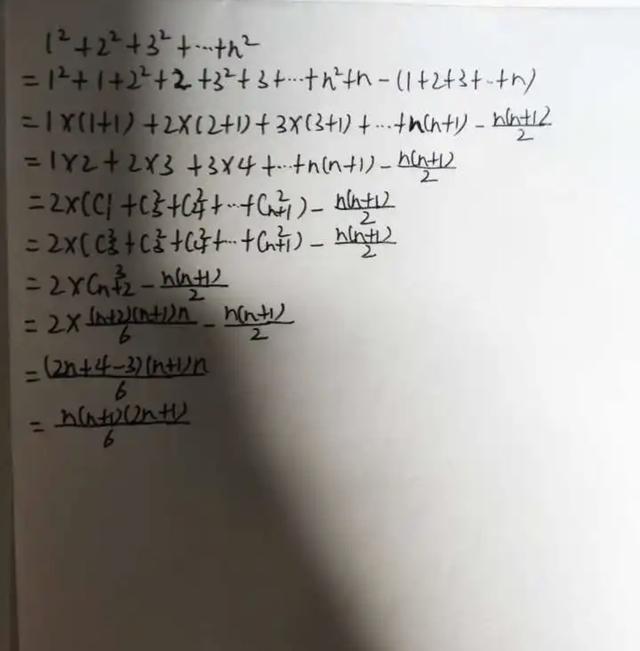 1²+2²+3²+⋯+n²
=1²+1+2²+2+3²+3+⋯+n²+n-(1+2+3+⋯+n)
=1×(1+1)+2×(2+1)+3×(3+1)+⋯+n(n+1)-n(n+1)/2
=1×2+2×3+3×4+⋯+n(n+1)-n(n+1)/2
=2×(C₂²+C₃²+C₄²+⋯+Cₙ₊₁²)-n(n+1)/2
=2×(C₃³+C₃²+C₄²+⋯+Cₙ₊₁²)-n(n+1)/2
=2×Cₙ₊₂³-n(n+1)/2
=2×(n+2)(n+1)n/6-n(n+1)/2
=(2n+4-3)(n+1)n/6
=n(n+1)(2n+1)/6